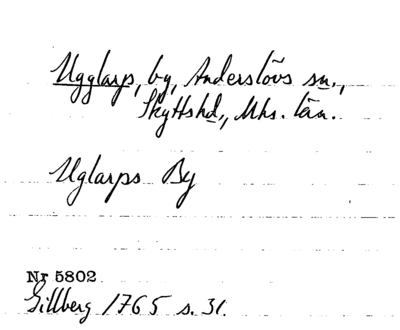 Ugglarp, by, Anderslövs sn.,
Skyttshd., Mhs. län.
Uglarps By
Nr 5802
Gillberg 1765 s. 31.